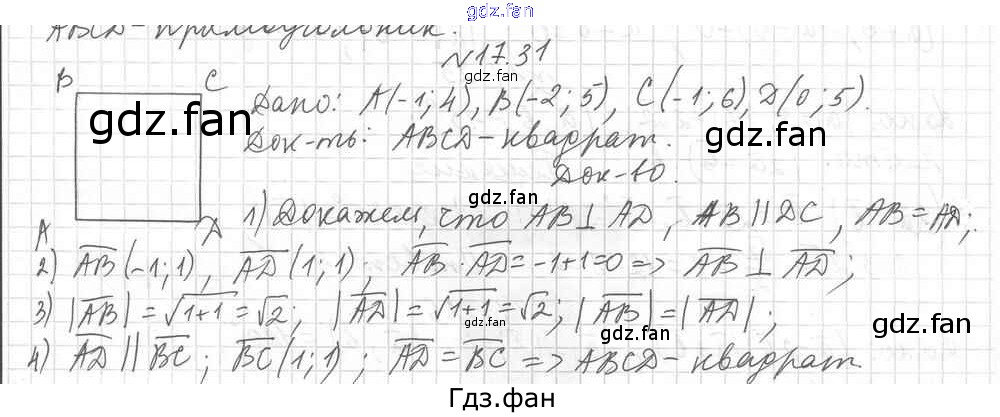 gdz.fan
ABCD - прямоугольник.
N17.31
B C
gdz.fan gdz.fan gdz.fan
Дано: A(-1; 4), B(-2; 5), C(-1; 6), D(0; 5).
Док-ть: ABCD - квадрат.
Док-во.
gdz.fan
A Д
1) Докажем, что AB ⊥ AD, AB || DC, AB = AD;
2) AB(-1; 1), AD(1; 1); AB · AD = -1+1=0 => AB ⊥ AD;
3) |AB| = √1+1 = √2; |AD| = √1+1 = √2; |AB| = |AD|;
gdz.fan gdz.fan gdz.fan
4) AD || BC; BC(1; 1); AD = BC => ABCD - квадрат
Гдз.фан